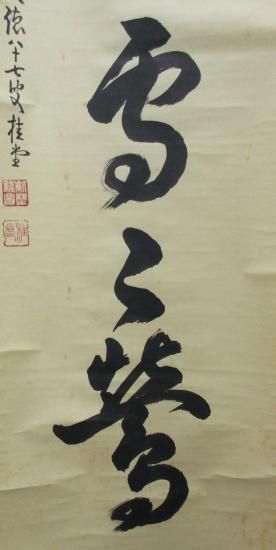 雪之鶯
八十七叟桂堂